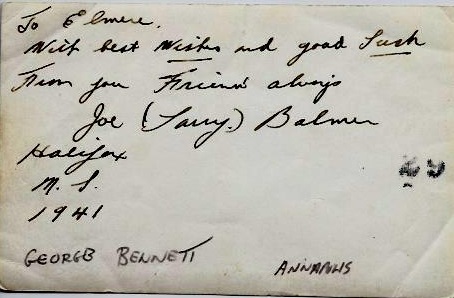 To Elmere.
With best Wishes and good Luck
From you Friend always
Joe (Larry.) Balmer
Halifax
N. S.
1941
GEORGE BENNETT
ANNAPOLIS